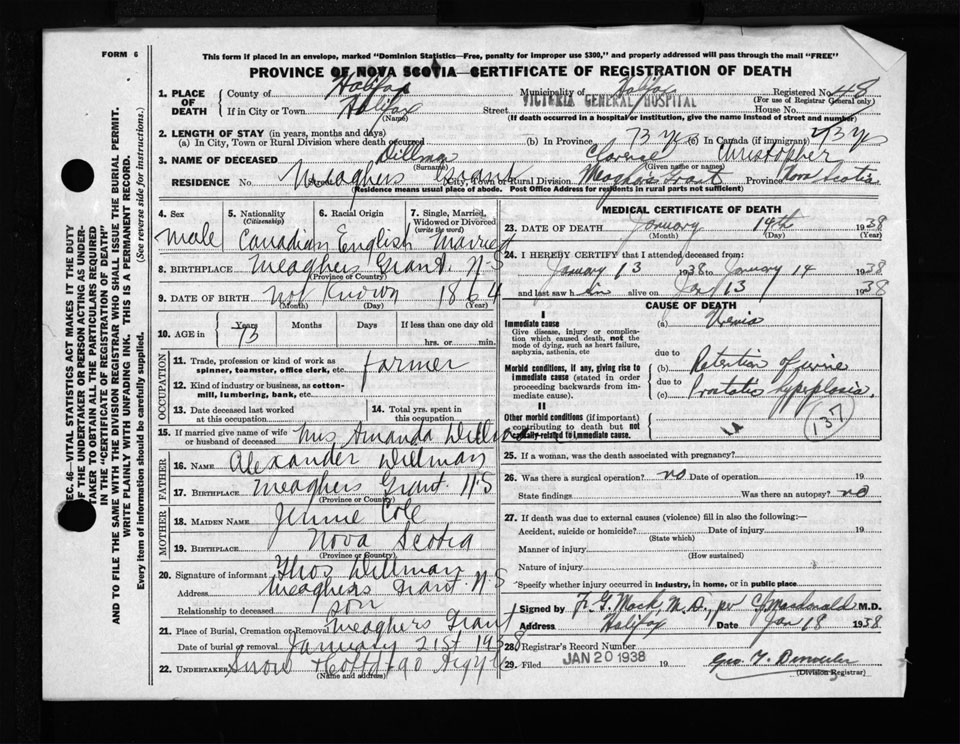 FORM 6
This form if placed in an envelope, marked "Dominion Statistics—Free, penalty for improper use $300," and properly addressed will pass through the mail "FREE"
PROVINCE OF NOVA SCOTIA—CERTIFICATE OF REGISTRATION OF DEATH
1. PLACE OF DEATH County of Halifax Municipality of Halifax Registered No. 48
(For use of Registrar General only)
If in City or Town Halifax (Name) Street VICTORIA GENERAL HOSPITAL House No.
(If death occurred in a hospital or institution, give the name instead of street and number)
2. LENGTH OF STAY (in years, months and days)
(a) In City, Town or Rural Division where death occurred (b) In Province 73 yrs (c) In Canada (if immigrant) 73 yrs
3. NAME OF DECEASED Dillman (Surname) Clarence Christopher (Given name or names)
RESIDENCE No. Meaghers Grant Street City, Town or Rural Division Meaghers Grant Province Nova Scotia
(Residence means usual place of abode. Post Office Address for residents in rural parts not sufficient)
4. Sex 5. Nationality (Citizenship) 6. Racial Origin 7. Single, Married, Widowed or Divorced (write the word)
Male Canadian English Married
8. BIRTHPLACE Meaghers Grant. N-S
(Province or Country)
9. DATE OF BIRTH Not Known 1864
(Month) (Day) (Year)
10. AGE in Years 73 Months Days If less than one day old
hrs. or min.
OCCUPATION
11. Trade, profession or kind of work as spinner, teamster, office clerk, etc. farmer
12. Kind of industry or business, as cotton-mill, lumbering, bank, etc.
13. Date deceased last worked at this occupation 14. Total yrs. spent in this occupation
15. If married give name of wife or husband of deceased Mrs Amanda Dillman
FATHER
16. NAME Alexander Dillman
17. BIRTHPLACE Meaghers Grant. N-S
(Province or Country)
MOTHER
18. MAIDEN NAME Jennie Cole
19. BIRTHPLACE Nova Scotia
(Province or Country)
20. Signature of informant Thos Dillman
Address Meaghers Grant N-S
Relationship to deceased son
21. Place of Burial, Cremation or Removal Meaghers Grant
Date of burial or removal January 21st 1938
22. UNDERTAKER Snow
(Name and address)
MEDICAL CERTIFICATE OF DEATH
23. DATE OF DEATH January 14th 1938
(Month) (Day) (Year)
24. I HEREBY CERTIFY that I attended deceased from:
January 13 1938 to January 14 1938
and last saw him alive on Jan 13 1938
CAUSE OF DEATH
I
Immediate cause
Give disease, injury or complication which caused death, not the mode of dying, such as heart failure, asphyxia, asthenia, etc
(a) Uremia
due to
Morbid conditions, if any, giving rise to immediate cause (stated in order proceeding backwards from immediate cause).
(b) Retention of urine
due to
(c) Prostatic
II
Other morbid conditions (if important) contributing to death but not causally related to immediate cause.
137
25. If a woman, was the death associated with pregnancy?
26. Was there a surgical operation? no Date of operation 19
State findings Was there an autopsy? no
27. If death was due to external causes (violence) fill in also the following:—
Accident, suicide or homicide? Date of injury 19
(State which)
Manner of injury
(How sustained)
Nature of injury
Specify whether injury occurred in industry, in home, or in public place
Signed by F. G. Mack, M.D., per C Macdonald M.D.
Address Halifax Date Jan 18 1938
28. Registrar's Record Number
29. Filed JAN 20 1938
(Division Registrar)
SEC. 46—VITAL STATISTICS ACT MAKES IT THE DUTY OF THE UNDERTAKER OR PERSON ACTING AS UNDERTAKER TO OBTAIN ALL THE PARTICULARS REQUIRED IN THE "CERTIFICATE OF REGISTRATION OF DEATH" AND TO FILE THE SAME WITH THE DIVISION REGISTRAR WHO SHALL ISSUE THE BURIAL PERMIT.
WRITE PLAINLY WITH UNFADING INK. THIS IS A PERMANENT RECORD.
Every item of information should be carefully supplied. (See reverse side for instructions.)